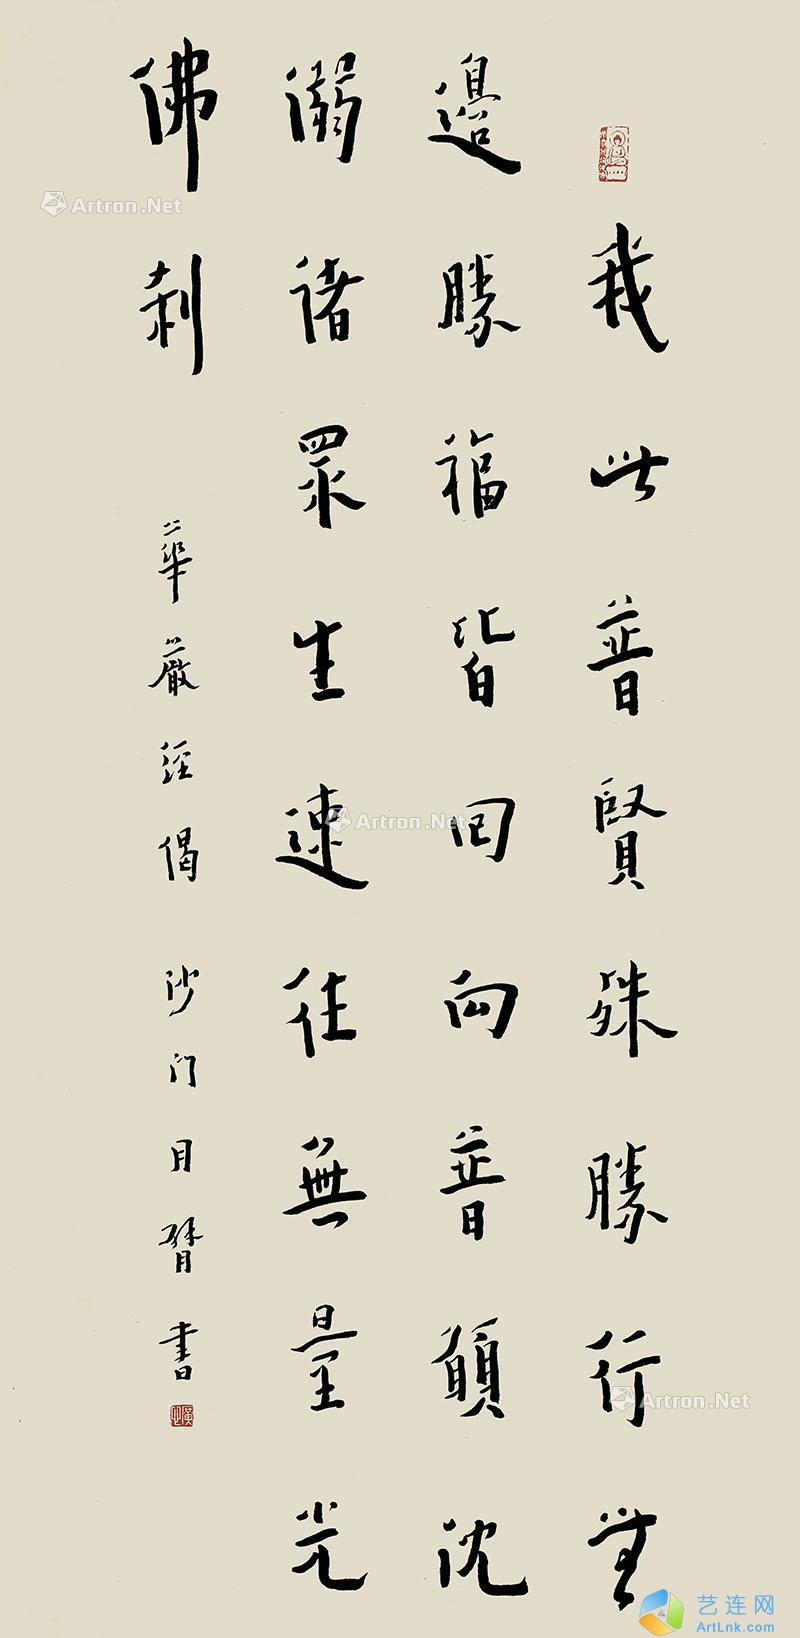 我此普賢殊勝行無
邊勝福皆回向普願沈
溺諸眾生速往無量光
佛刹
華嚴經偈 沙門月臂書
Artron.Net
Artron.Net
Artron.Net
艺连网
ArtLnk.com